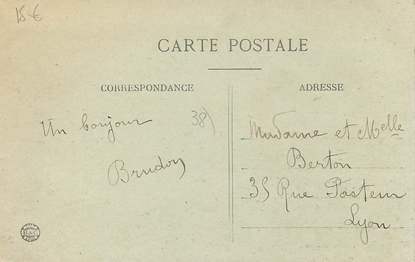 15 €
CARTE POSTALE
CORRESPONDANCE
ADRESSE
Un bonjour
38)
Brudon
Madame et Melle
Berton
35 Rue Pasteur
Lyon